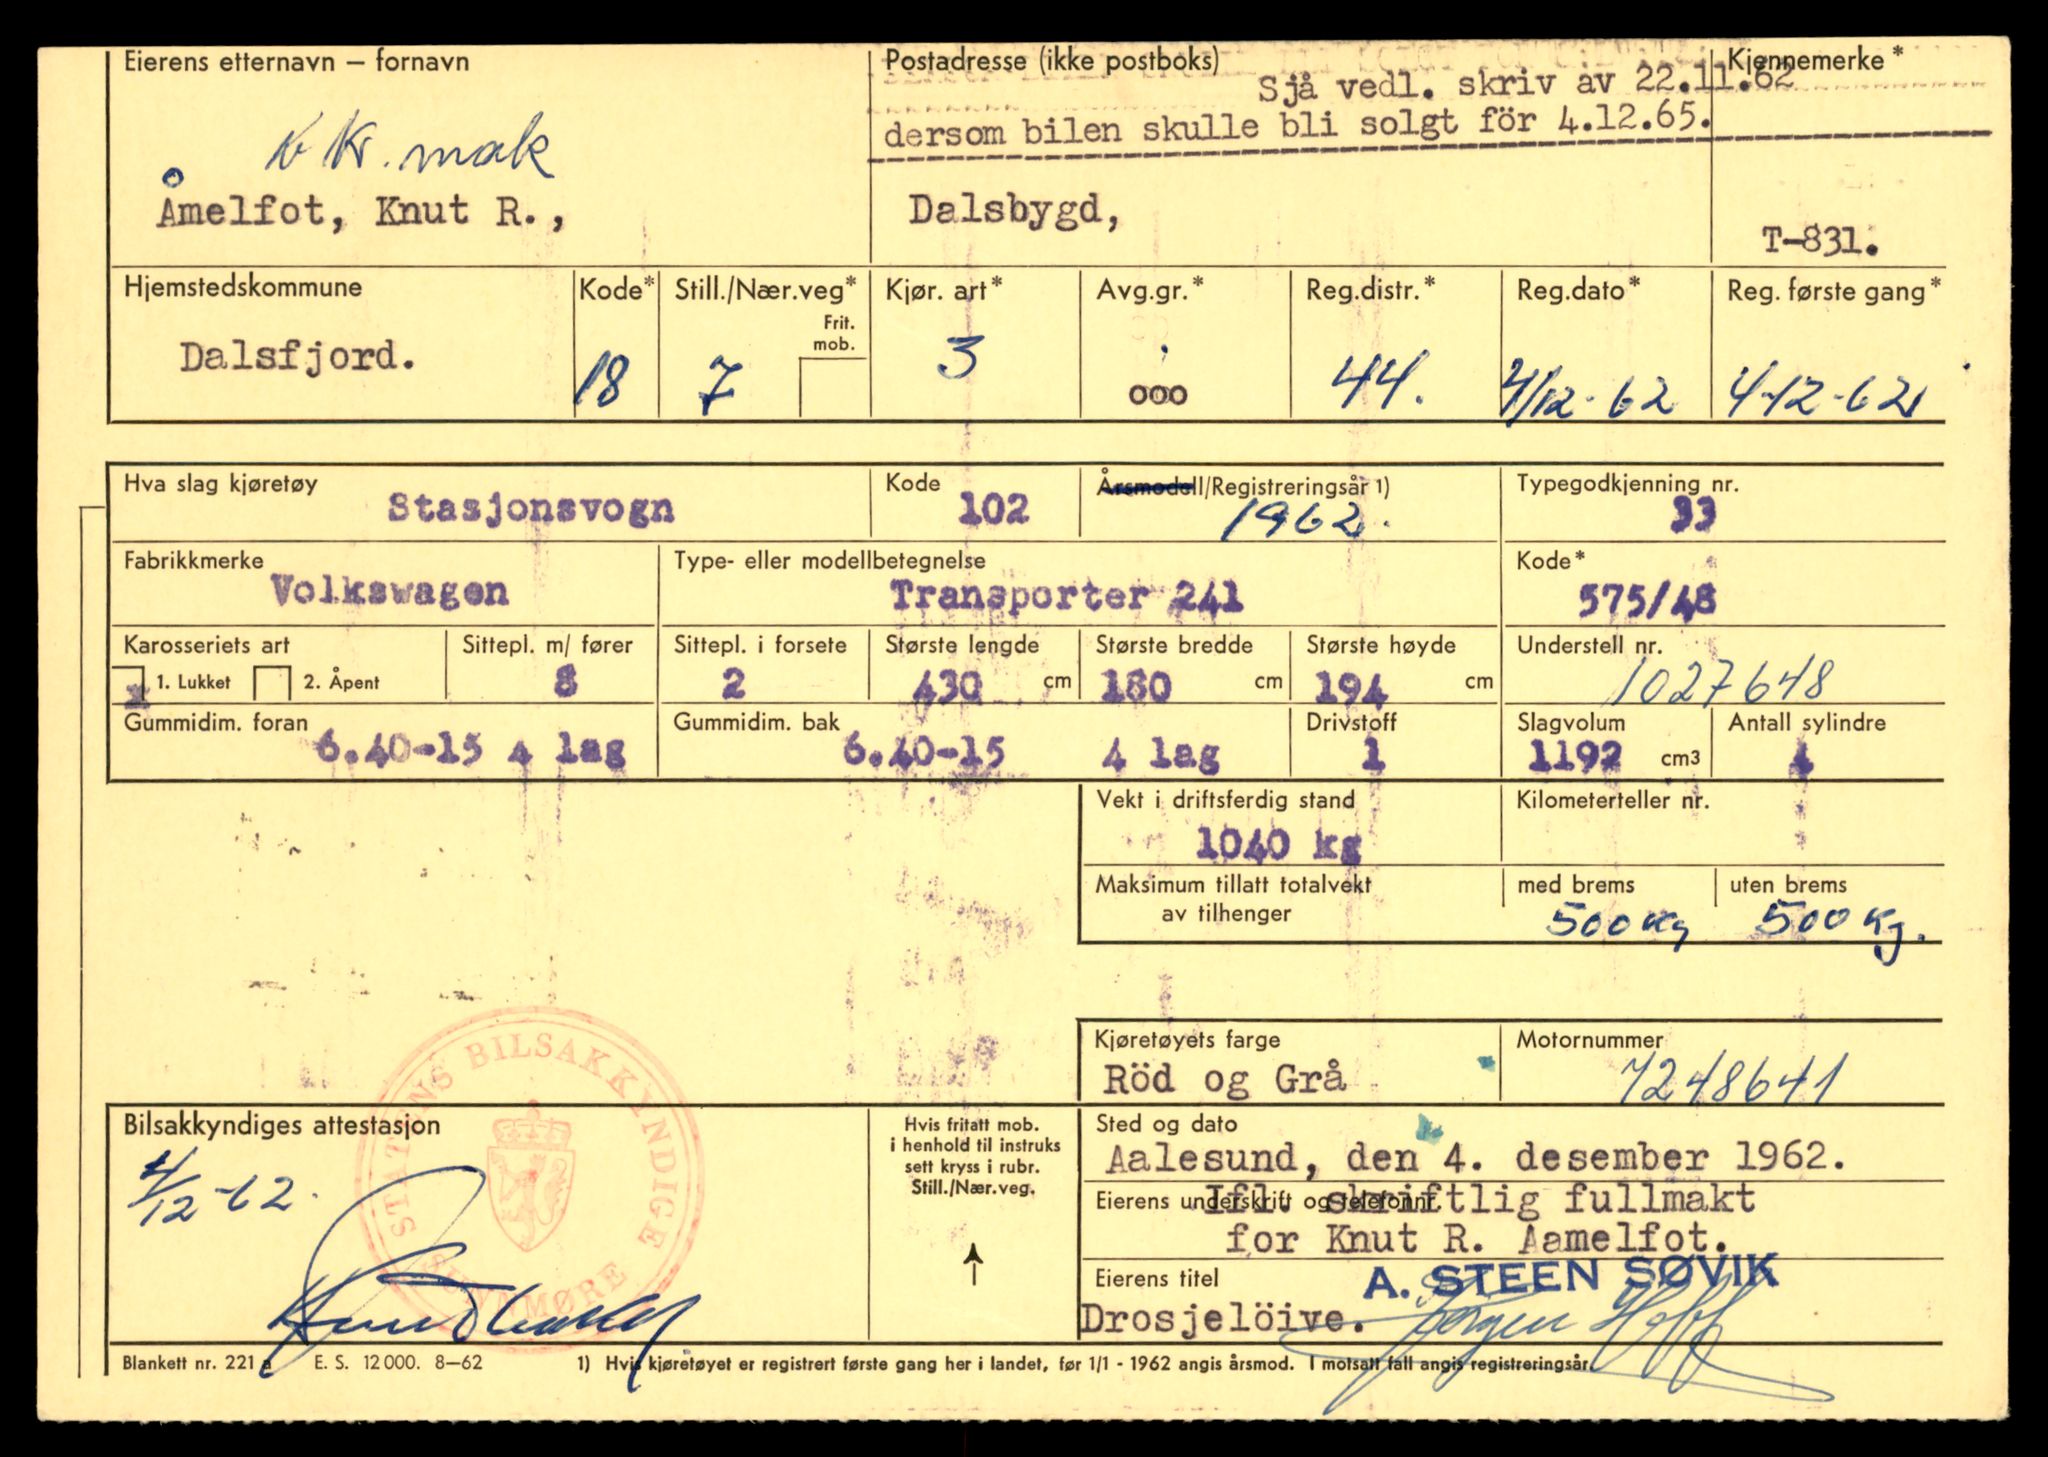 Eierens etternavn – fornavn
Postadresse (ikke postboks)
Kjennemerke*
Sjå vedl. skriv av 22.11.62
dersom bilen skulle bli solgt för 4.12.65.
Kr. mak
Åmelfot, Knut R.,
Dalsbygd,
T-831.
Hjemstedskommune Kode* Still./Nær.veg* Kjør. art* Avg.gr.* Reg.distr.* Reg.dato* Reg. første gang*
Frit. mob.
Dalsfjord. 18 7 3 000 44. 4/12-62 4-12-62
Hva slag kjøretøy Kode Årsmodell/Registreringsår 1) Typegodkjenning nr.
Stasjonsvogn 102 1962. 33
Fabrikkmerke Type- eller modellbetegnelse Kode*
Volkswagen Transporter 241 575/48
Karosseriets art Sittepl. m/ fører Sittepl. i forsete Største lengde Største bredde Største høyde Understell nr.
x 1. Lukket 2. Åpent 8 2 430 cm 180 cm 194 cm 1027648
Gummidim. foran Gummidim. bak Drivstoff Slagvolum Antall sylindre
6.40-15 4 lag 6.40-15 4 lag 1 1192 cm3 4
Vekt i driftsferdig stand Kilometerteller nr.
1040 kg
Maksimum tillatt totalvekt av tilhenger med brems uten brems
500 kg 500 kg.
Kjøretøyets farge Motornummer
Röd og Grå 7248641
STATENS BILSAKKYNDIGE SUNNMØRE
Bilsakkyndiges attestasjon
4/12-62.
Hvis fritatt mob.
i henhold til instruks
sett kryss i rubr.
Still./Nær.veg.
Sted og dato
Aalesund, den 4. desember 1962.
Eierens underskrift og telefonnr.
Ifl. skriftlig fullmakt
for Knut R. Aamelfot.
Eierens titel
A. STEEN SØVIK
Drosjelöive.
Jørgen Hoff
Blankett nr. 221 a E. S. 12 000. 8–62 1) Hvis kjøretøyet er registrert første gang her i landet, før 1/1 - 1962 angis årsmod. I motsatt fall angis registreringsår.